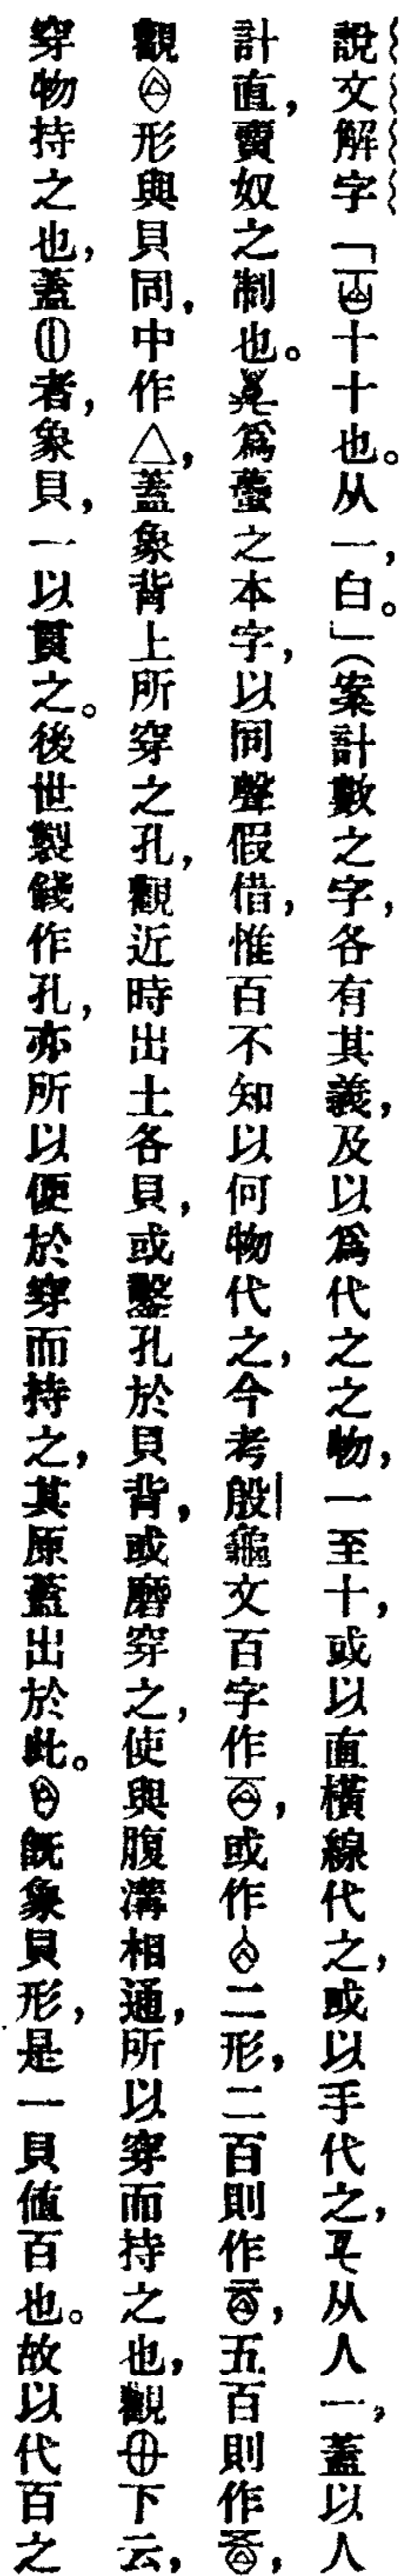 說文解字「百十十也。从一,白。」(案計數之字,各有其義,及以爲代之之物,一至十,或以直橫線代之,或以手代之,从人一,蓋以人
計直,賣奴之制也。爲蠆之本字,以同聲假借,惟百不知以何物代之,今考殷龜文百字作,或作二形,二百則作,五百則作,
觀形與貝同,中作△,蓋象背上所穿之孔,觀近時出土各貝,或鑿孔於貝背,或磨穿之,使與腹溝相通,所以穿而持之也,觀下云,
穿物持之也,蓋者,象貝,一以貫之。後世製錢作孔,亦所以便於穿而持之,其原蓋出於此。既象貝形,是一貝值百也。故以代百之